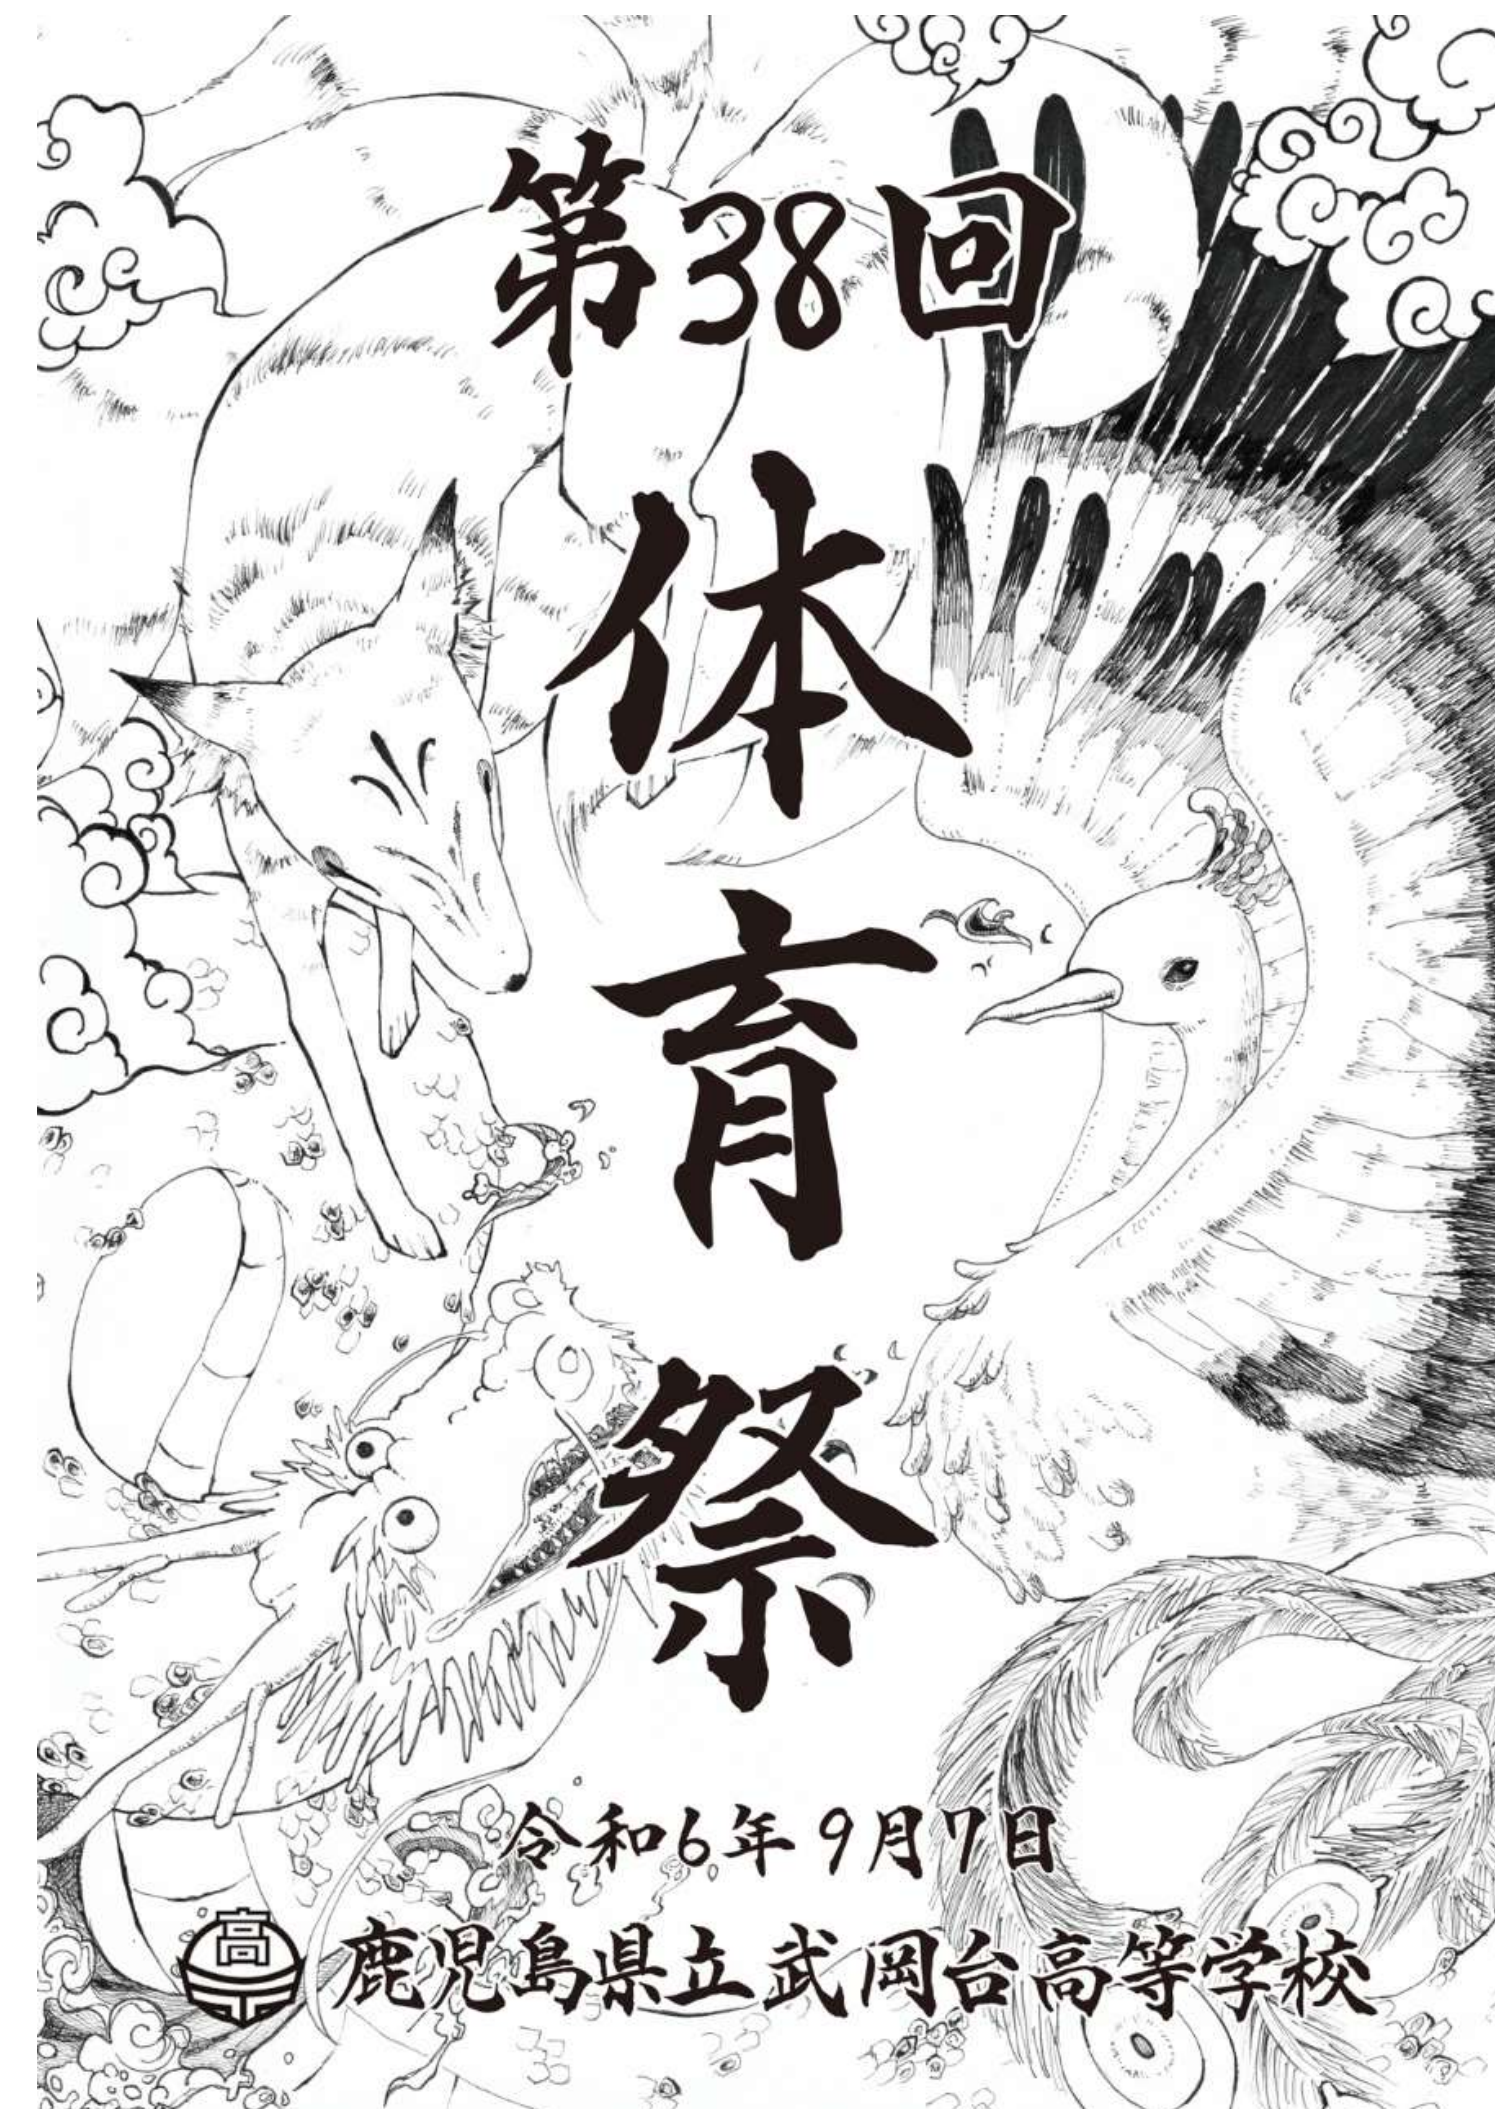 第38回
体
育
祭
令和6年9月7日
高
鹿児島県立武岡台高等学校